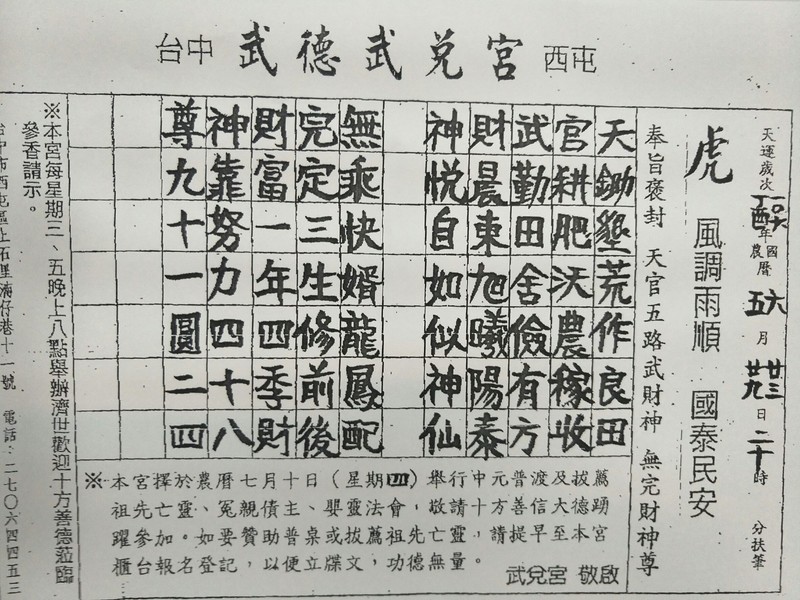 台中 武德武兌宮 西屯
天運歲次丁酉一0六年 國曆農曆 六五月 廿三廿九日二十時 分扶筆
虎 風調雨順 國泰民安
奉旨褒封 天官五路武財神 無完財神尊
天鋤墾荒作良田
官耕肥沃農稼收
武勤田舍儉有方
財晨東旭曦陽泰
神悅自如似神仙
無乘快婿龍鳳配
完定三生修前後
財富一年四季財
神靠努力四十八
尊九十一圓二四
※本宮擇於農曆七月十日（星期四）舉行中元普渡及拔薦
祖先亡靈、冤親債主、嬰靈法會，敬請十方善信大德踴
躍參加。如要贊助普桌或拔薦祖先亡靈，請提早至本宮
櫃台報名登記，以便立牒文，功德無量。
武兌宮 敬啟
※本宮每星期三、五晚上八點舉辦濟世歡迎十方善德蒞臨
參香請示。
台中市西屯區上石里湳仔巷十一號 電話：二七０六四四五三